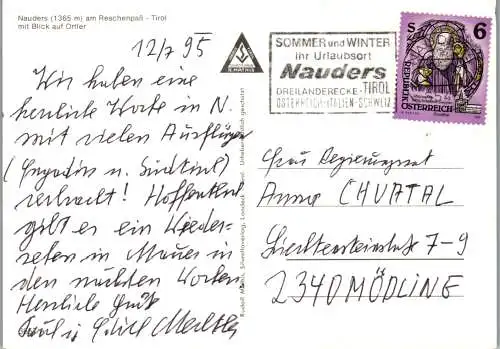 Nauders (1365 m) am Reschenpaß - Tirol
mit Blick auf Ortler
12/7 95
Wir haben eine
herrliche Woche in N.
mit vielen Ausflügen
(Engadin u. Südtirol)
verbracht! Hoffentlich
gibt es ein Wieder-
sehen in Mauer in
den nächsten Wochen
Herzliche Grüße
u. Edith
SOMMER und WINTER
ihr Urlaubsort
Nauders
DREILÄNDERECKE - TIROL
ÖSTERREICH-ITALIEN-SCHWEIZ
S 6
REPUBLIK
ÖSTERREICH
R. MATHIS
Rudolf Mathis, Silvrettaverlag, Landeck-Perfuchs. Urheberrechtlich geschützt
Frau Regierungsrat
Anna CHVATAL
Liechtensteinstraße 7-9
2340 MÖDLING